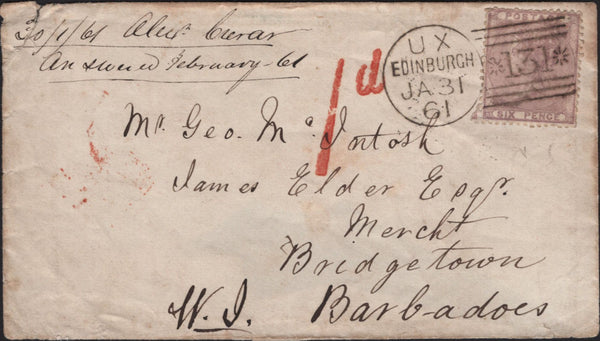 30/1/61 Alexr. Currar
Answered February - 61
1d
UX
EDINBURGH
JA 31
61
POSTAGE
131
SIX PENCE
Mr. Geo. McIntosh
James Elder Esqr.
Mercht
Bridgetown
W.I. Barbadoes